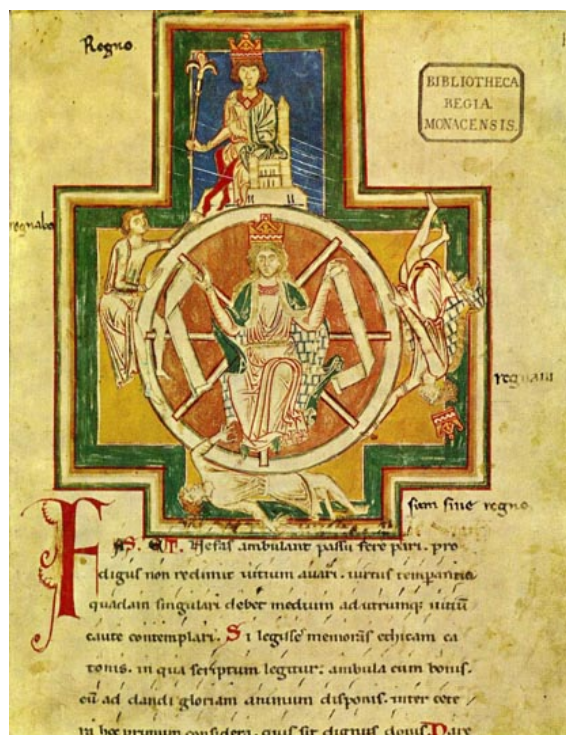 Regno.
BIBLIOTHECA
REGIA
MONACENSIS.
regnabo
regnavi
sum sine regno
FAS. ET. Nefas ambulant passu fere pari. pro
digus non redimit uitium auari. uirtus temperantia
quadam singulari debet medium ad utrumq; uitiū
caute contemplari. Si legisse memoras ethicam ca
tonis. in qua scriptum legitur: ambula cum bonis.
cū ad dandi gloriam animum disponis. inter cete
ra hoc primum considera. quis sit dignus donis. Dare